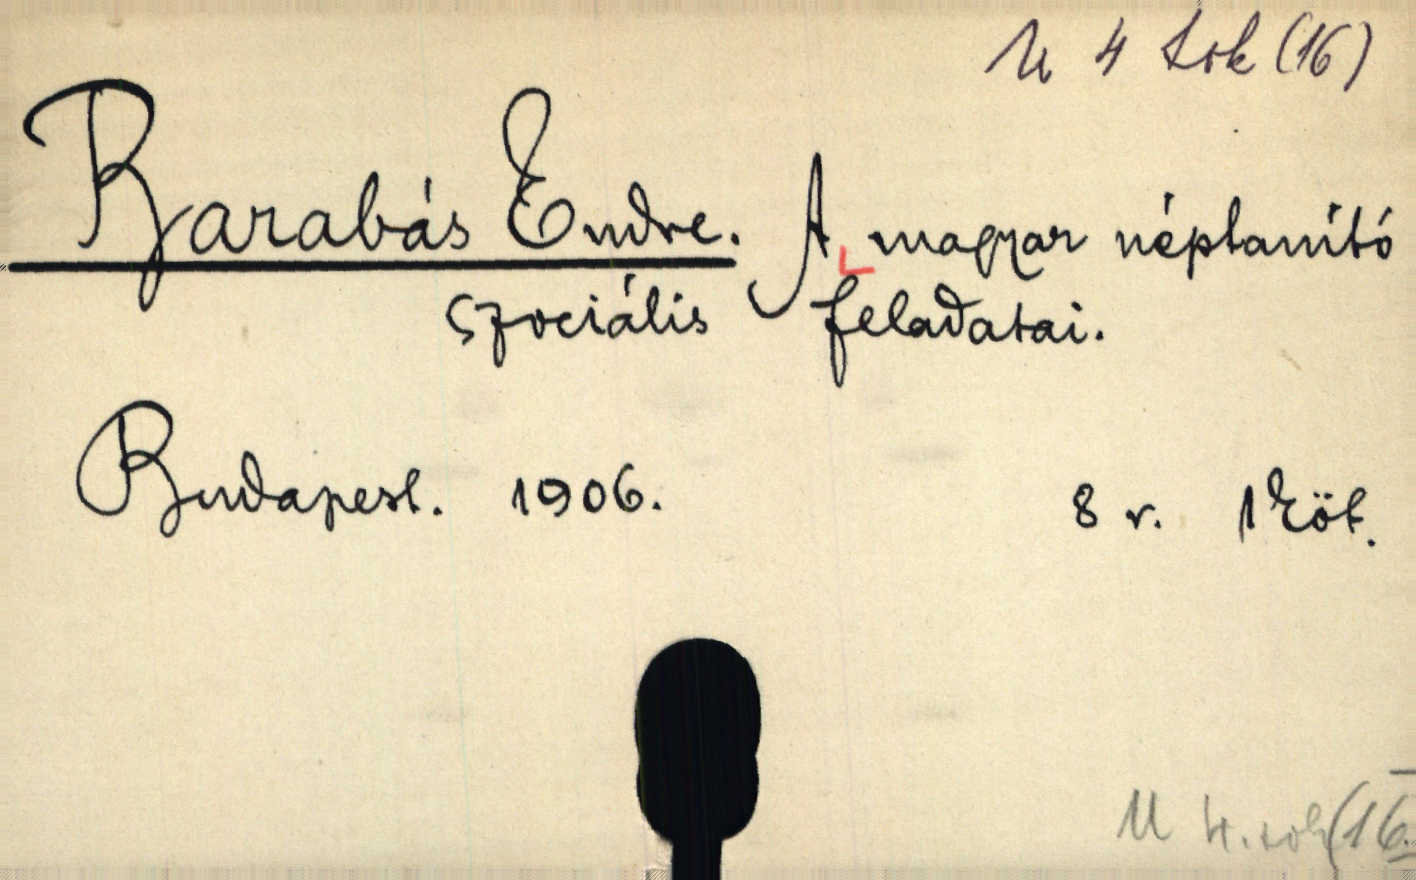 U 4 Sok (16)
Barabás Endre. A magyar néptanító
szociális feladatai.
Budapest. 1906. 8 r. 1 köt.
U 4. sok (16.